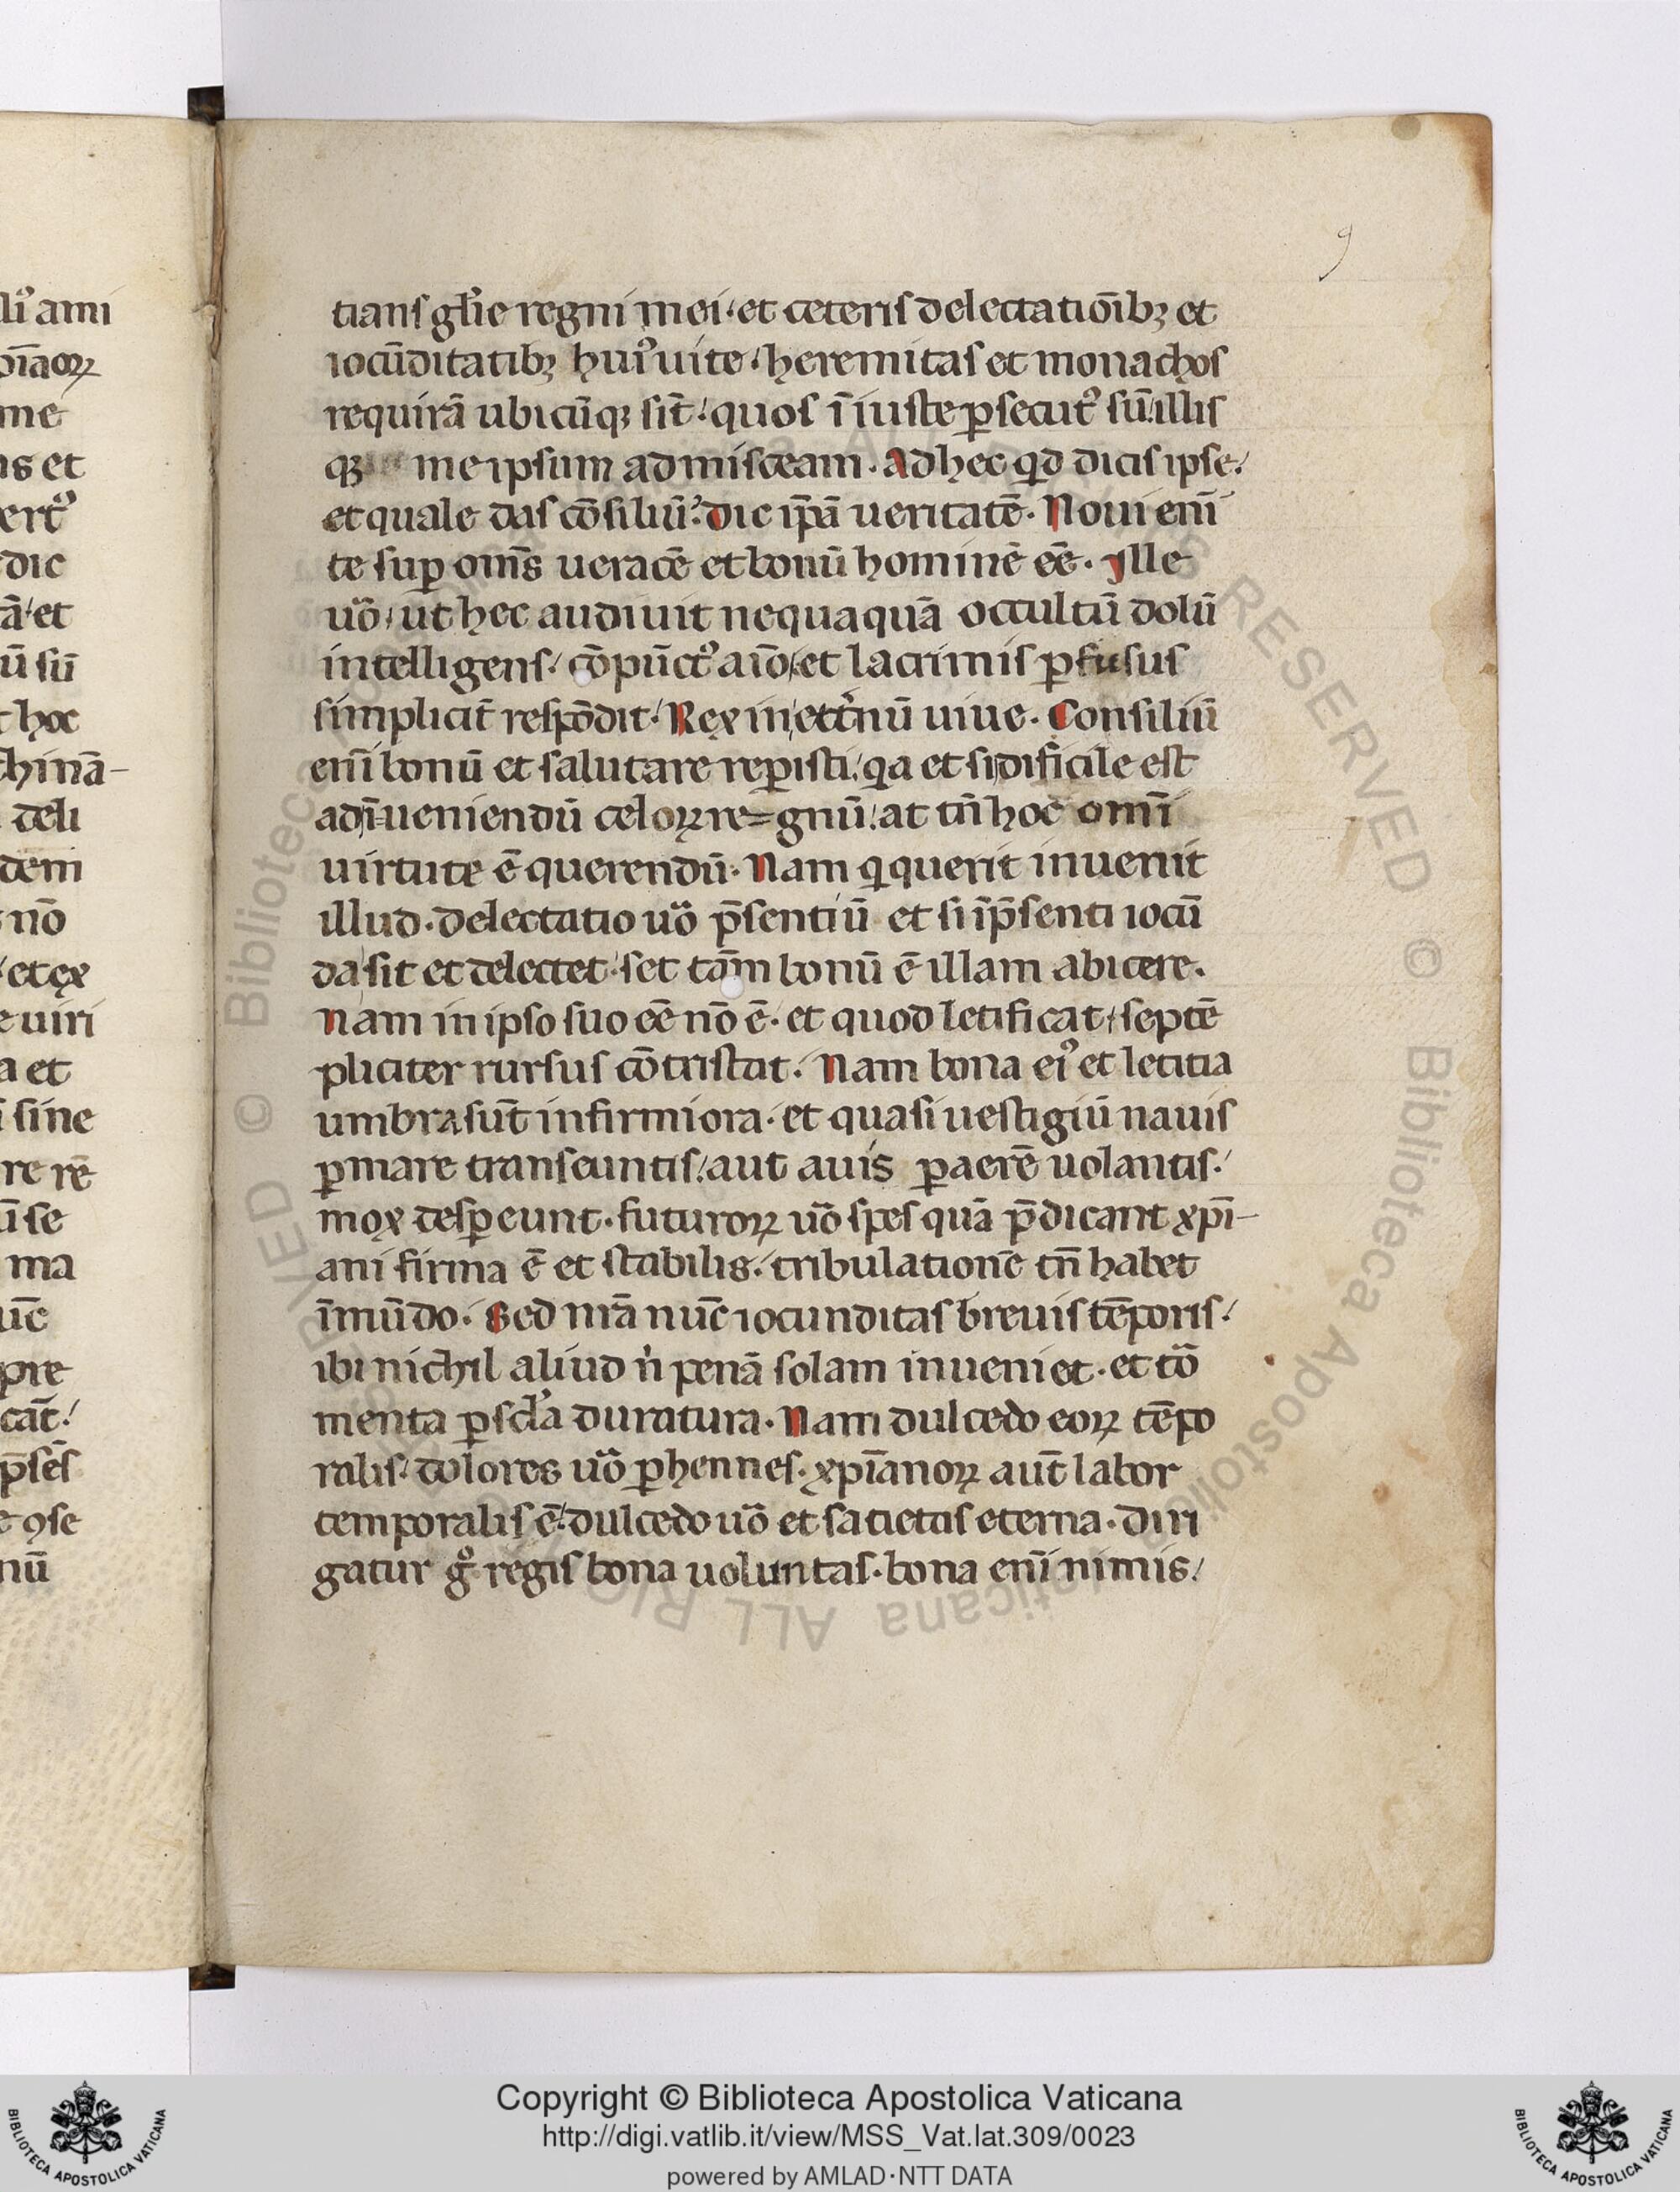 lı᷒ ami
pīaoꝝ
me
ns et
ert᷒
dic
tā et
ū sū
t hoc
chinā-
deli
dem
nō
et ex
e uiri
a et
sine
re rē
ūse
ma
ūc
pre
cat̄
p̄sēs
e ꝯse
nū
9
tians gl̄ie regni mei· et ceteris delectatiōibꝫ et
iocūditatibꝫ hui᷒ uite· heremitas et monachos
requirā ubicūqꝫ sīt· quos īiuste ꝑsecut᷒ sū· illis
qꝫ me ipsum admisceam· Ad hec qͥd dicis ipse·
et quale das cōsiliū· dic ip̄ā ueritatē· Noui enī
te suꝑ om̄s ueracē et bonū hominē eē· Ille
uō· ut hec audiuit nequaquā occultū dolū
intelligens· cōpūct᷒ aīo· et lacrimis ꝑfusus
simplicit̄ respōdit· Rex in etͨnū uiue· Consiliū
enī bonū et salutare reꝑisti· qͥa et si dificile est
ad īueniendū celoꝝ re=gnū· at tn̄ hoc omī
uirtute ē querendū· Nam qͥ querit inuenit
illud· delectatio uō p̄sentiū et si īp̄senti iocū
da sit et delectet· set tām bonū ē illam abicere·
Nam in ipso suo eē nō ē· et quod letificat· septē
pliciter rursus cōtristat· Nam bona ei᷒ et letitia
umbra sūt infirmiora· et quasi uestigiū nauis
ꝑ mare transeuntis· aut auis ꝑ aerē uolantis·
mox desꝑeunt· futuroꝝ uō spes quā p̄dicant xp̄i-
ani firma ē et stabilis· tribulationē tn̄ habet
ī mūdo· Sed nrā nūc iocunditas breuis tēporis·
ibi nichil aliud nͥ penā solam inueniet· et tō
menta ꝑ scl̄a duratura· Nam dulcedo eoꝝ tēpo
ralis· dolores uō ꝑhennes· xp̄ianoꝝ aūt labor
temporalis ē· dulcedo uō et satietas eterna· Diri
gatur gͦ regis bona uoluntas· bona enī nimis·
© Biblioteca Apostolica Vaticana ALL RIGHTS RESERVED © Biblioteca Apostolica Vaticana ALL RIGHTS RESERVED
Copyright © Biblioteca Apostolica Vaticana
http://digi.vatlib.it/view/MSS_Vat.lat.309/0023
powered by AMLAD·NTT DATA
BIBLIOTECA APOSTOLICA VATICANA
BIBLIOTECA APOSTOLICA VATICANA